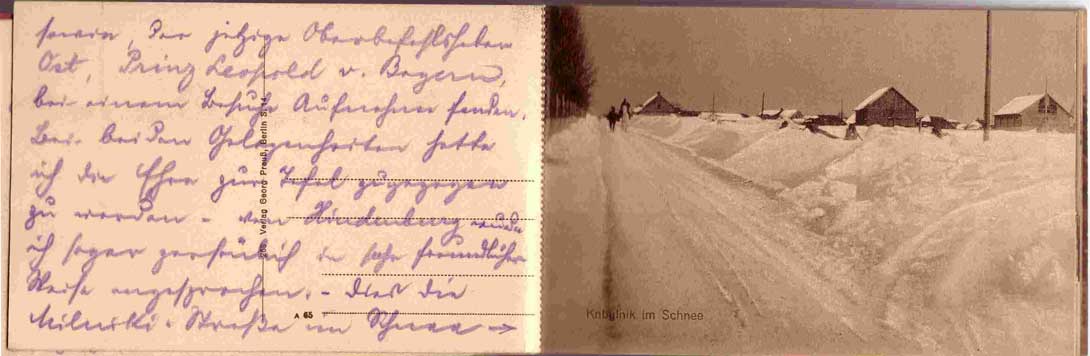 sowie, der jetzige Oberbefehlshaber
Ost, Prinz Leopold v. Bayern,
bei einem Besuche Aufnahme fanden.
Bei beiden Gelegenheiten hatte
ich die Ehre zur Tafel zugezogen
zu werden - von Hindenburg wurde
ich sogar persönlich in sehr freundlicher
Weise angesprochen. - Dies die
Straße im Schnee →
Verlag Georg Preuß, Berlin S. 14
A 65
Kobylnik im Schnee